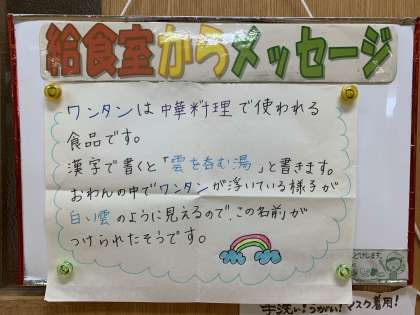 給食室からメッセージ
ワンタンは中華料理で使われる
食品です。
漢字で書くと「雲を呑む湯」と書きます。
おわんの中でワンタンが浮いている様子が
白い雲のように見えるので、この名前が
つけられたそうです。
手洗い!うがい!マスク着用!